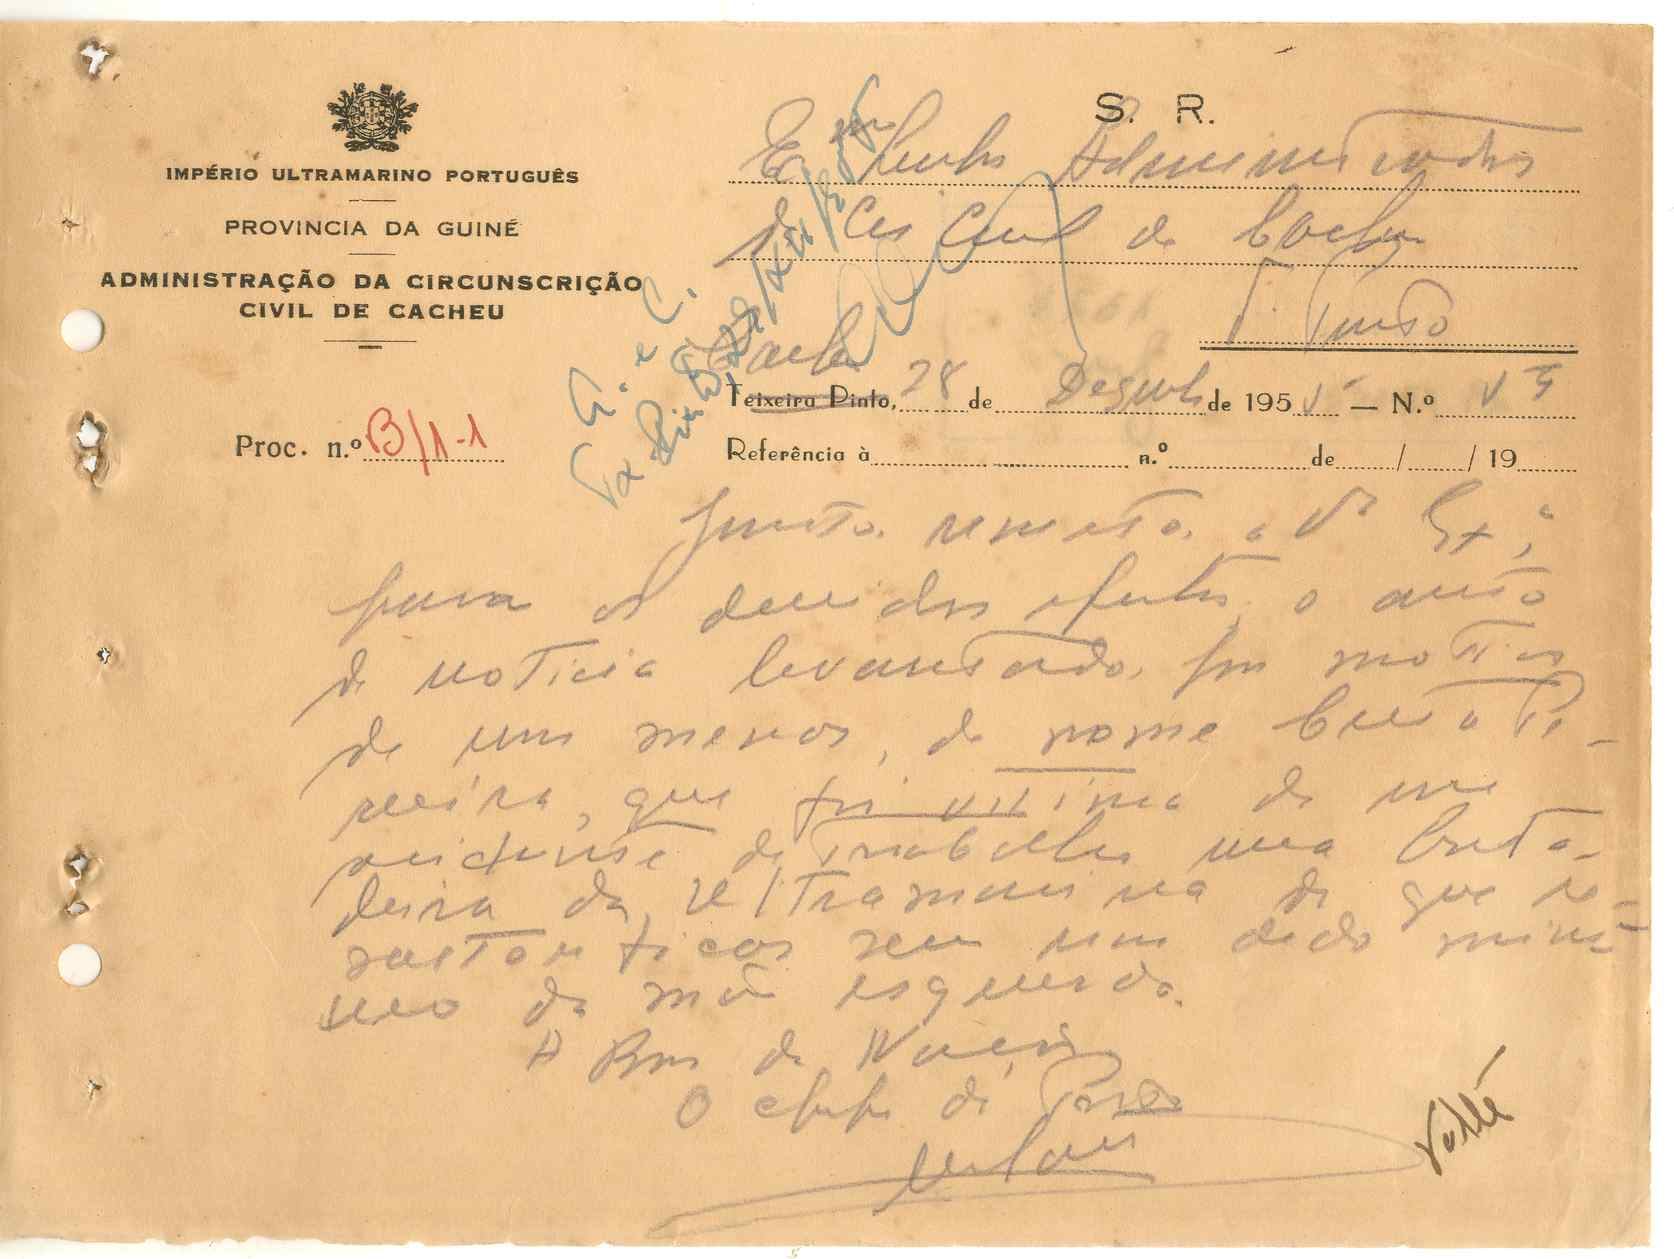 S. R.
IMPÉRIO ULTRAMARINO PORTUGUÊS
PROVINCIA DA GUINÉ
ADMINISTRAÇÃO DA CIRCUNSCRIÇÃO
CIVIL DE CACHEU
Proc. n.º B/1-1
Senhor Administrador
da Civil de Cacheu
T. Pinto
Cacheu
Teixeira Pinto, 28 de Dezembro de 1955 — N.º
Referência à n.º de / / 19
G. e C.
Junto remeto a V.ª Ex.ª,
para os devidos efeitos, o auto
de noticia levantado por motivo
de um menor, de nome
reira, que foi vitima de um
acidente de trabalho numa
deira da Ultramarina de que re-
sultou ficar sem um dedo mini-
mo da mão esquerda.
A Bem da Nação
O chefe de Posto